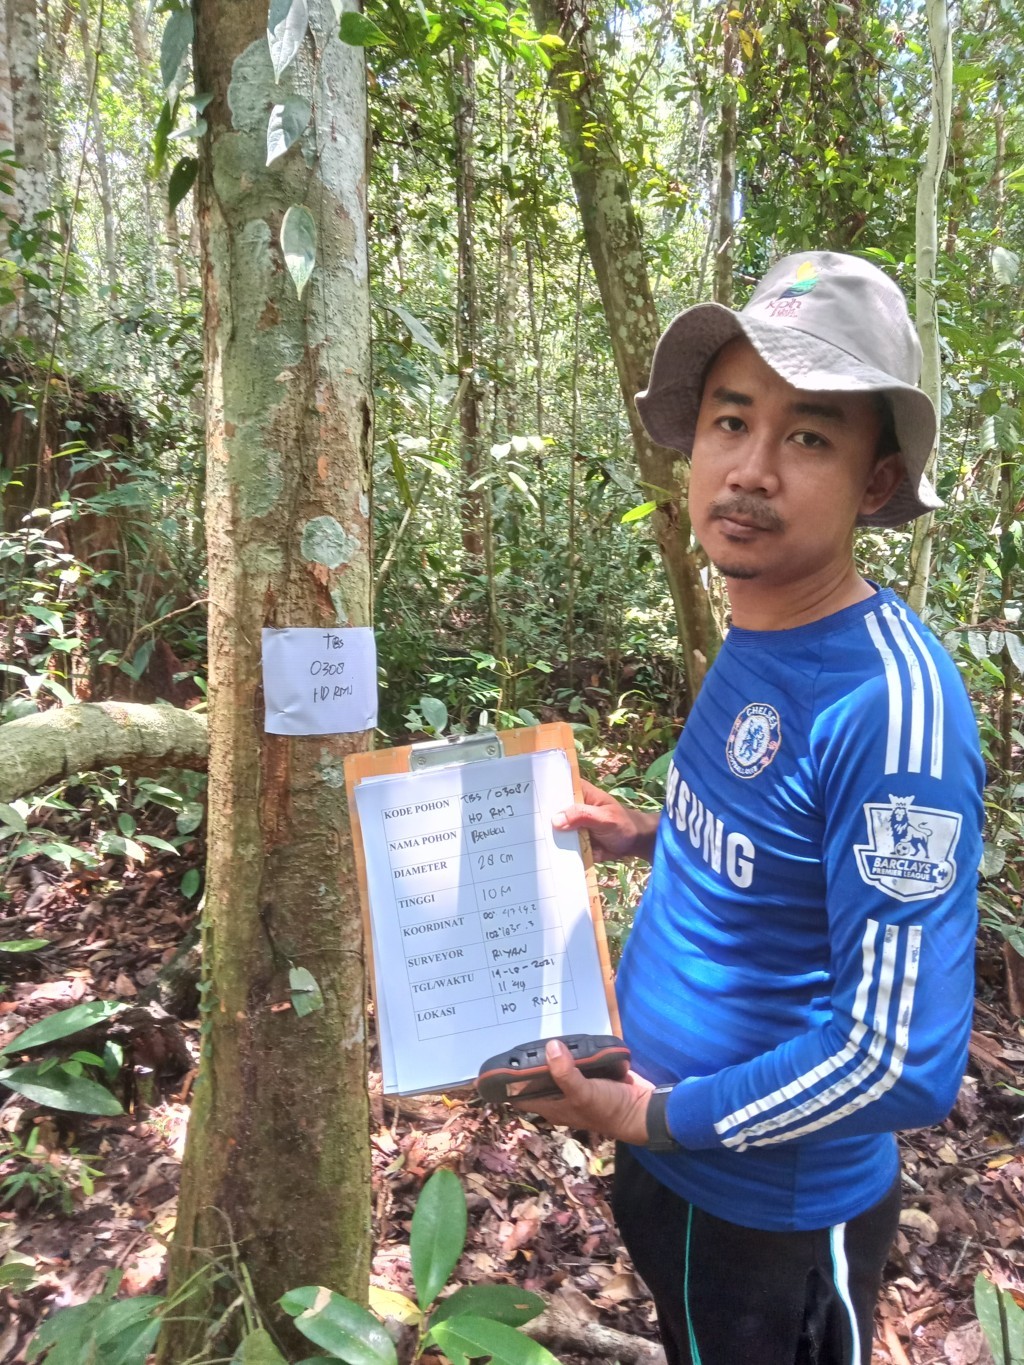 TBS
0308
HD RMJ
KODE POHON TBS / 0308 /
HD RMJ
NAMA POHON BENGKU
DIAMETER 28 cm
TINGGI 10 M
KOORDINAT 00° 47'19.2
102°
SURVEYOR RIYAN
TGL/WAKTU 14-10-2021
11 49
LOKASI HD RMJ
CHELSEA
FOOTBALL CLUB
MSUNG
BARCLAYS
PREMIER LEAGUE